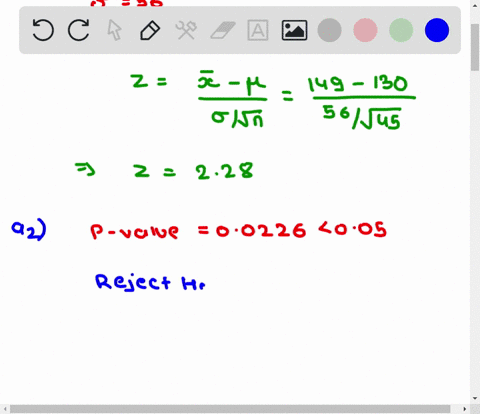 σ = 56
z = x̄ − μ / σ/√n = 149 − 130 / 56/√45
⇒ z = 2.28
a2) P-value = 0.0226 < 0.05
Reject H